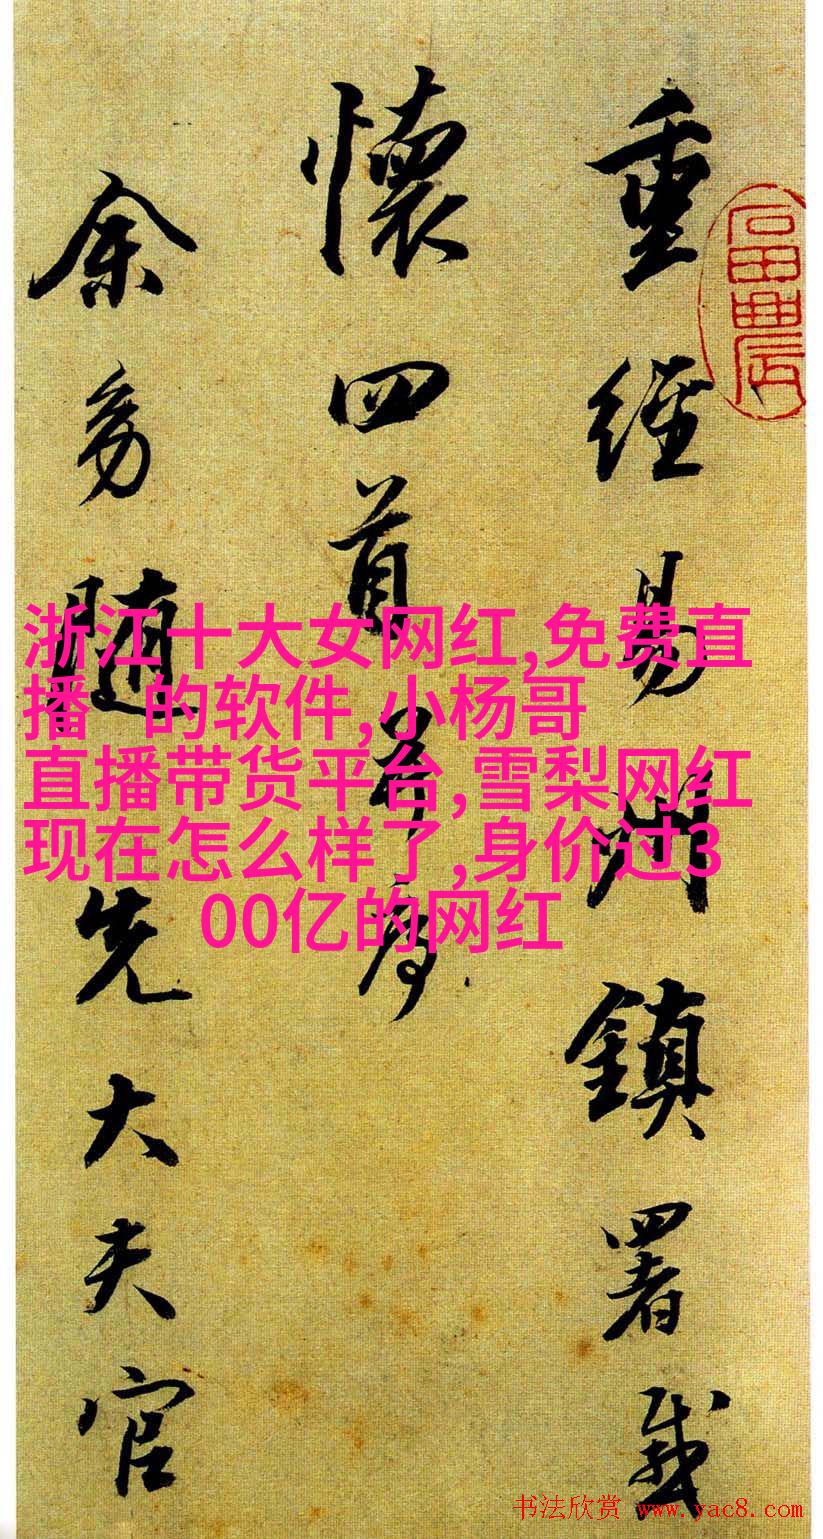 重经易州鎮署感
懷四首并序
余弱随先大夫官
浙江十大女网红,免费直
播 的软件,小杨哥
直播带货平台,雪梨网红
现在怎么样了,身价过3
00亿的网红
书法欣赏 www.yac8.com